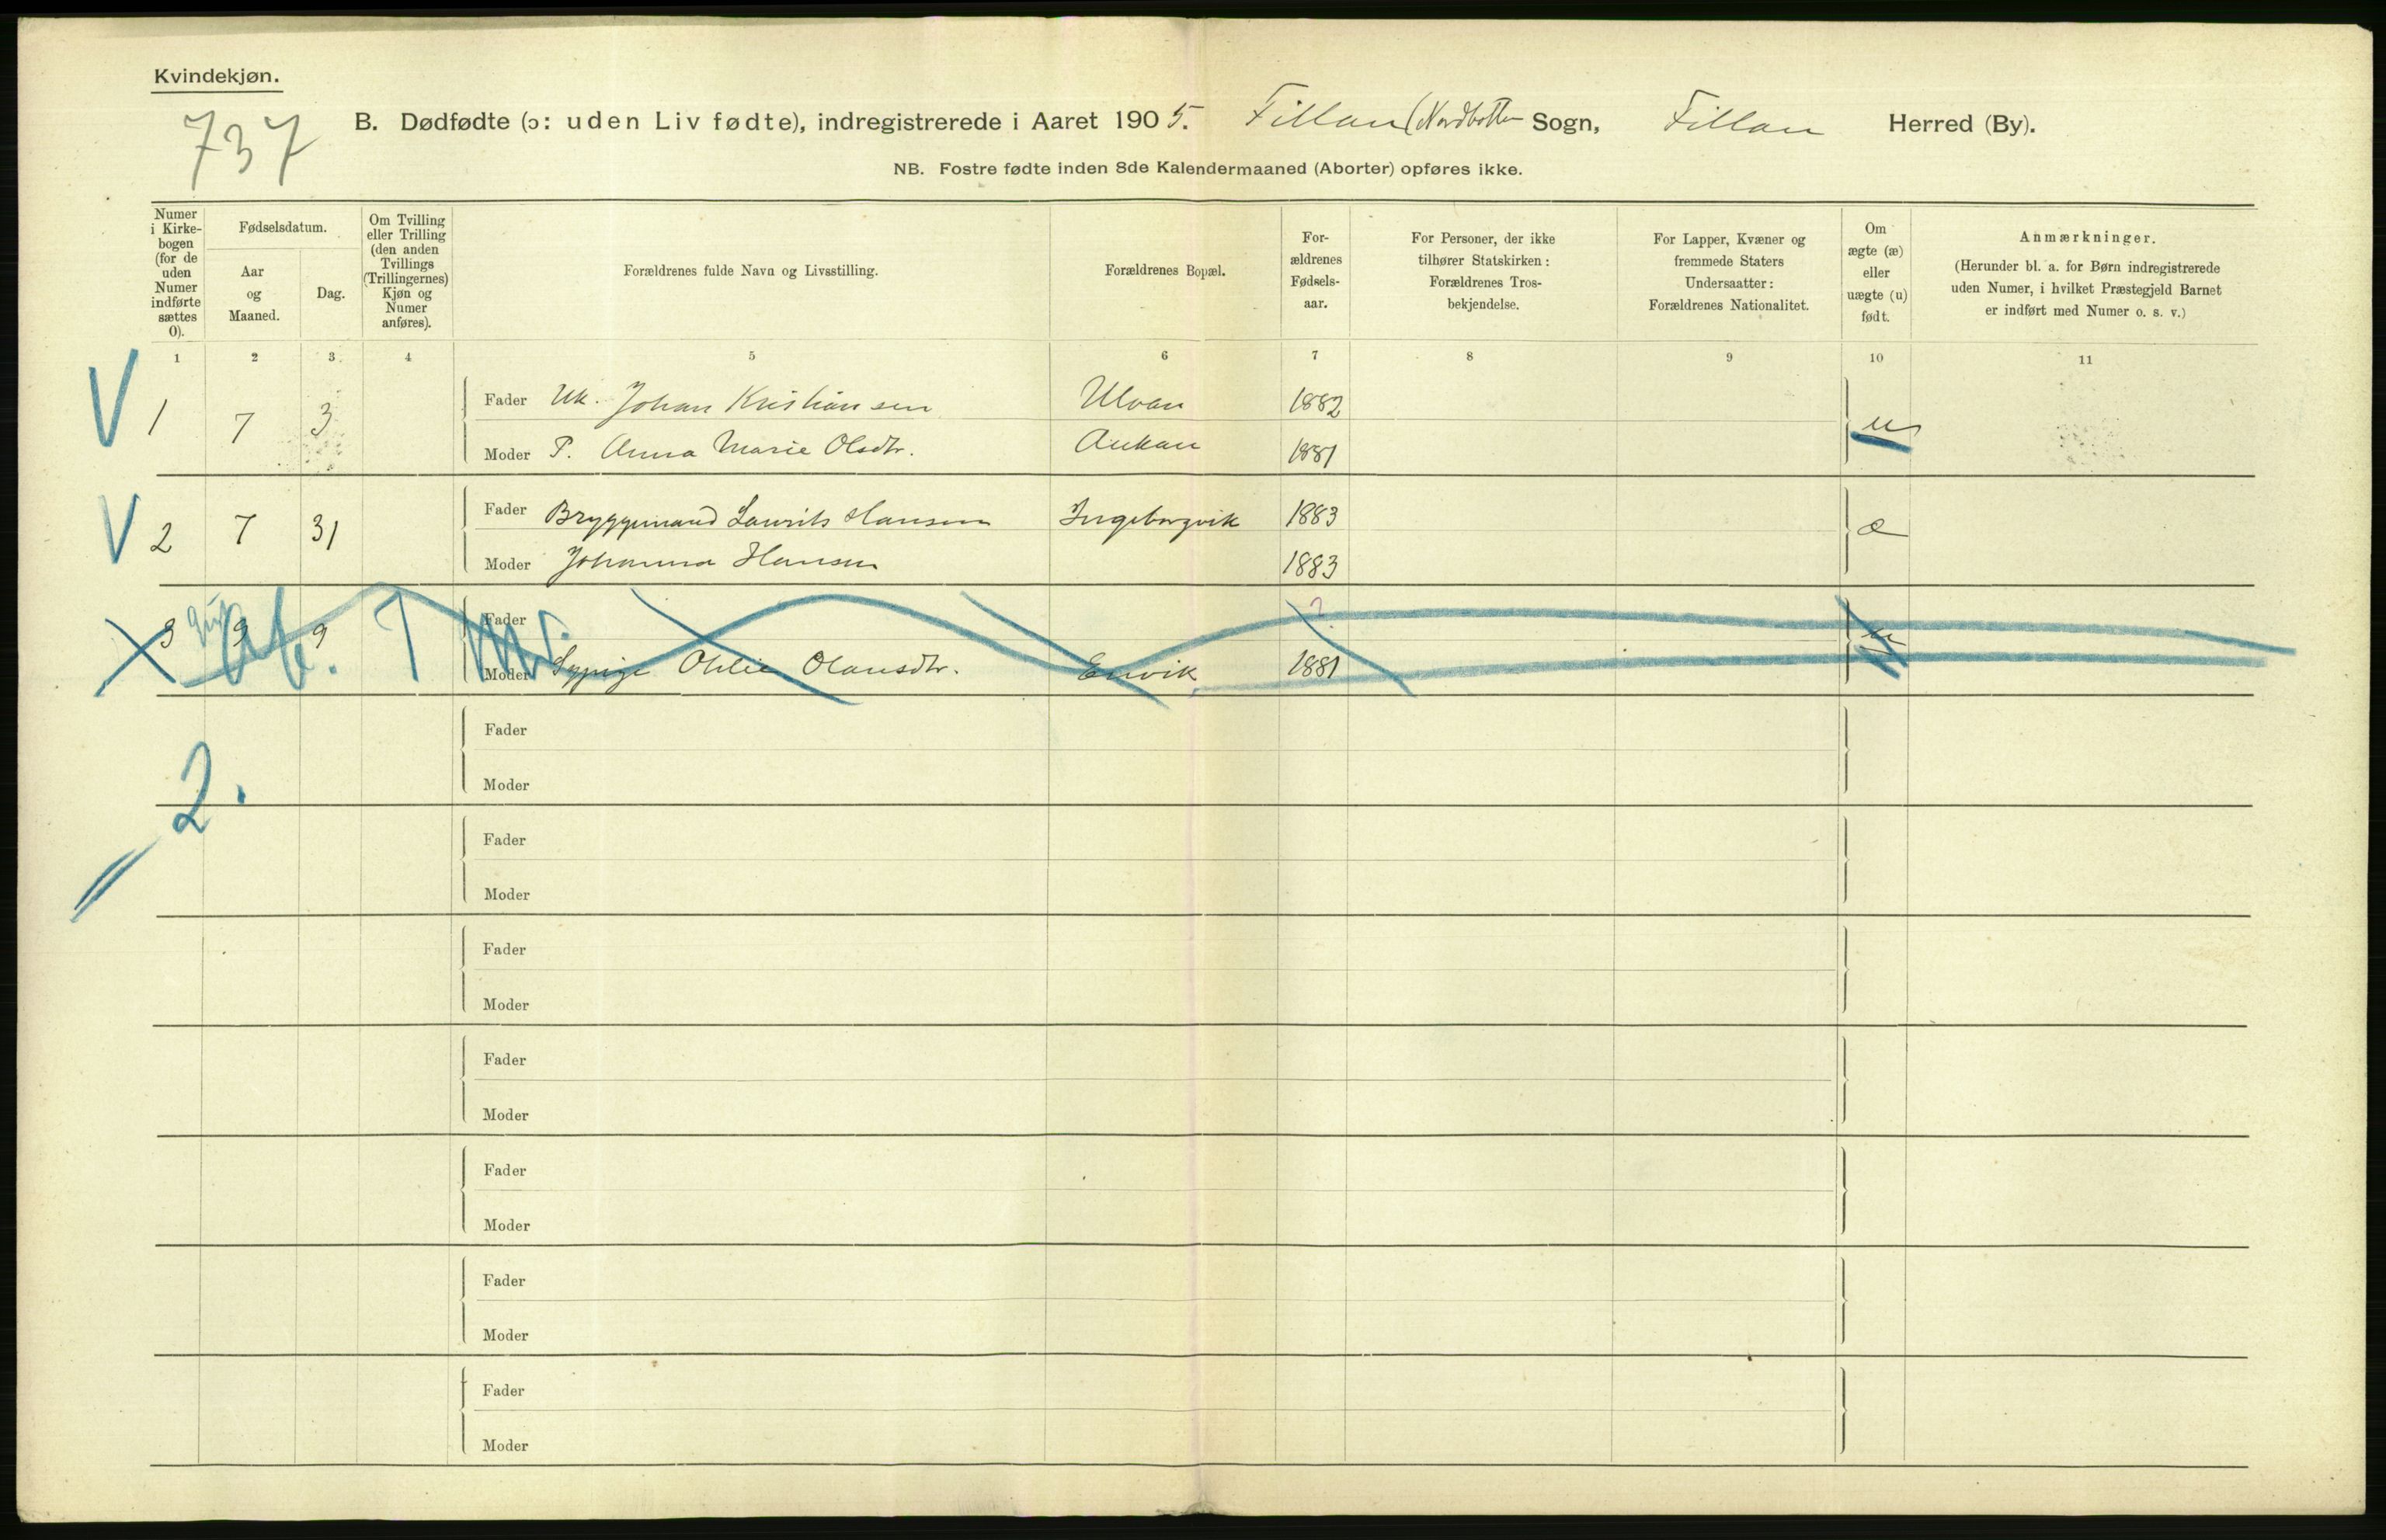 Kvindekjøn.
737
B. Dødfødte (ɔ: uden Liv fødte), indregistrerede i Aaret 1905. Fillan (Nordbotten Sogn, Fillan Herred (By).
NB. Fostre fødte inden 8de Kalendermaaned (Aborter) opføres ikke.
Numer i Kirke-bogen (for de uden Numer indførte sættes 0).
Fødselsdatum.
Aar og Maaned.
Dag.
Om Tvilling eller Trilling (den anden Tvillings (Trillingernes) Kjøn og Numer anføres).
Forældrenes fulde Navn og Livsstilling.
Forældrenes Bopæl.
For-ældrenes Fødsels-aar.
For Personer, der ikke tilhører Statskirken: Forældrenes Tros-bekjendelse.
For Lapper, Kvæner og fremmede Staters Undersaatter: Forældrenes Nationalitet.
Om ægte (æ) eller uægte (u) født.
Anmærkninger.
(Herunder bl. a. for Børn indregistrerede uden Numer, i hvilket Præstegjeld Barnet er indført med Numer o. s. v.)
1 2 3 4 5 6 7 8 9 10 11
V 1 7 3 Fader Uk. Johan Kristiansen Ulvan 1882 u
Moder P. Anna Marie Olsdtr. Aukan 1881
V 2 7 31 Fader Bryggemand Laurits Hansen Ingeborgvik 1883 æ
Moder Johanna Hansen 1883
3 9 9 Fader ? u
Moder Sypige Ohlie Olausdtr. Envik 1881
Fader
Moder
2.
Fader
Moder
Fader
Moder
Fader
Moder
Fader
Moder
Fader
Moder
Fader
Moder